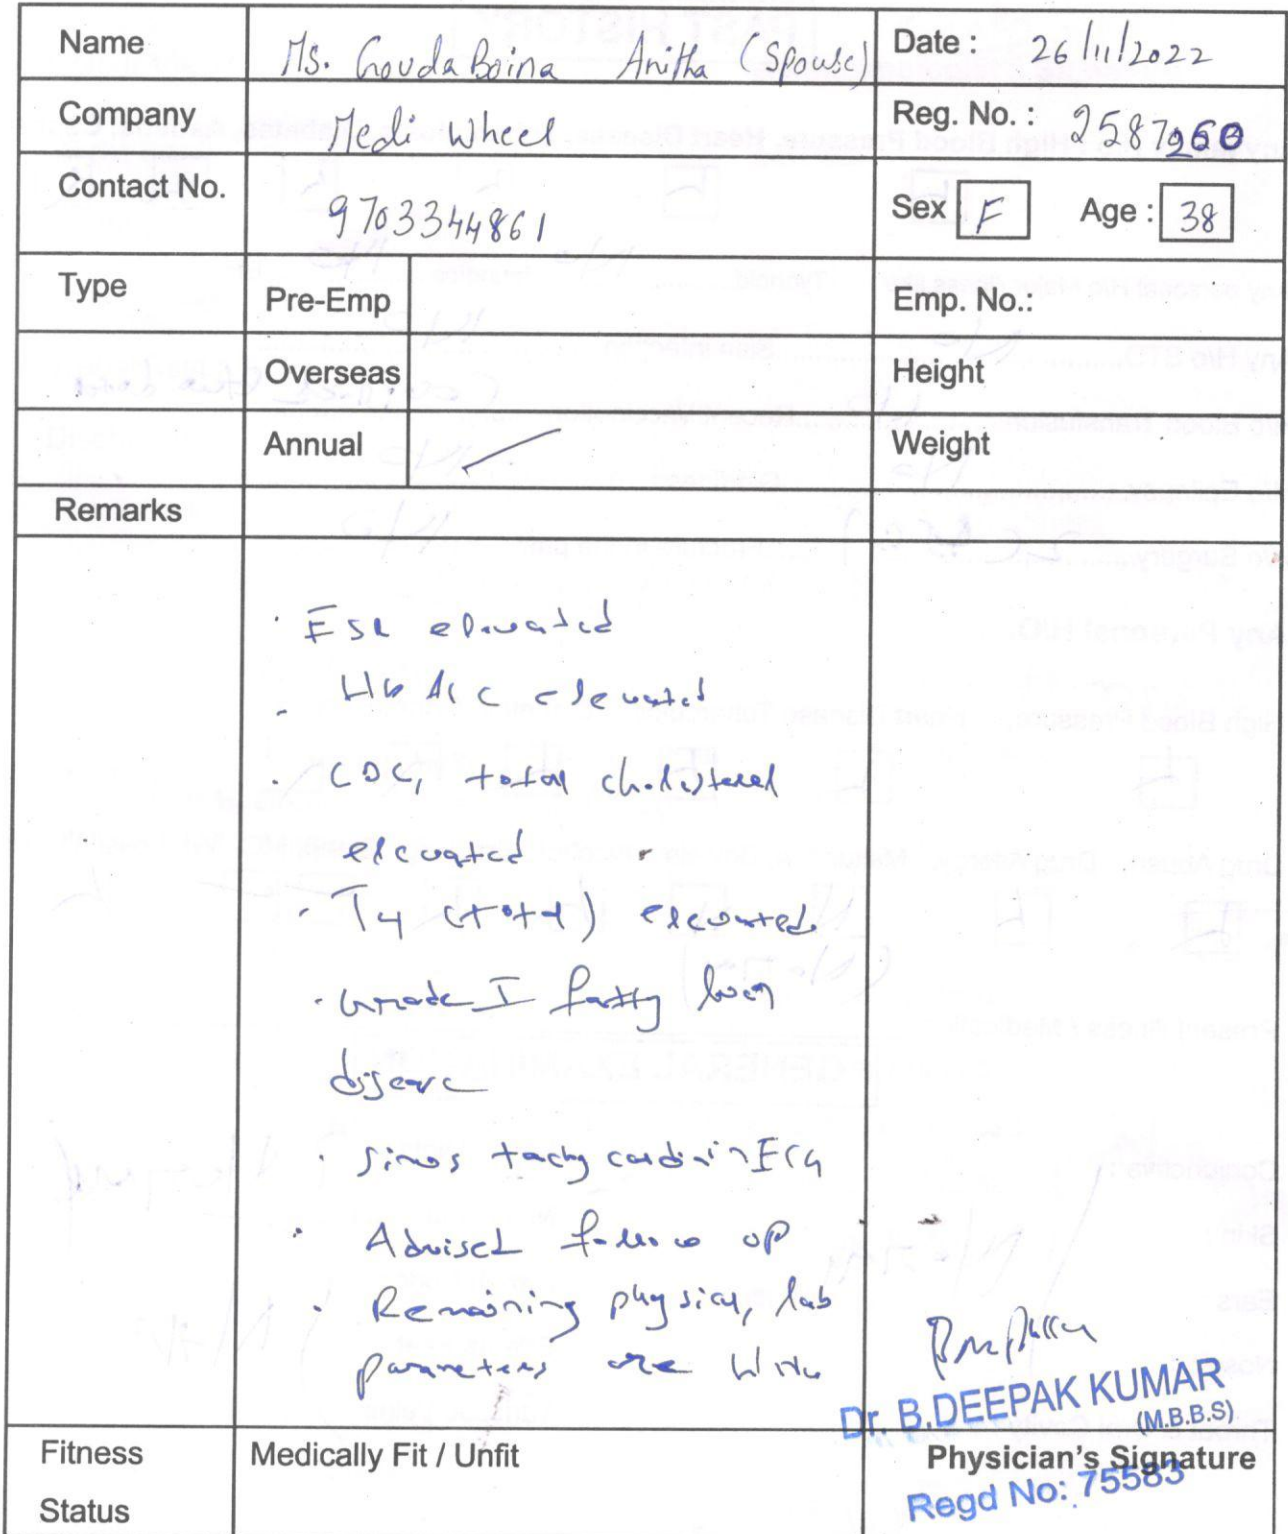 Name Ms. GoudaBoina Anitha (Spouse) Date : 26/11/2022
Company Medi Wheel Reg. No. : 2587260
Contact No. 9703344861 Sex F Age : 38
Type Pre-Emp Emp. No.:
Overseas Height
Annual Weight
Remarks
ESR elevated
HbA1c elevated
total cholisterol
elevated
T4 (total) elevated
Grade I fatty liver
disease
Sinus tachycardia in ECG
Advised follow up
Remaining physical, lab
parameters are WNL
Dr. B.DEEPAK KUMAR
(M.B.B.S)
Fitness Medically Fit / Unfit Physician's Signature
Status Regd No: 75583